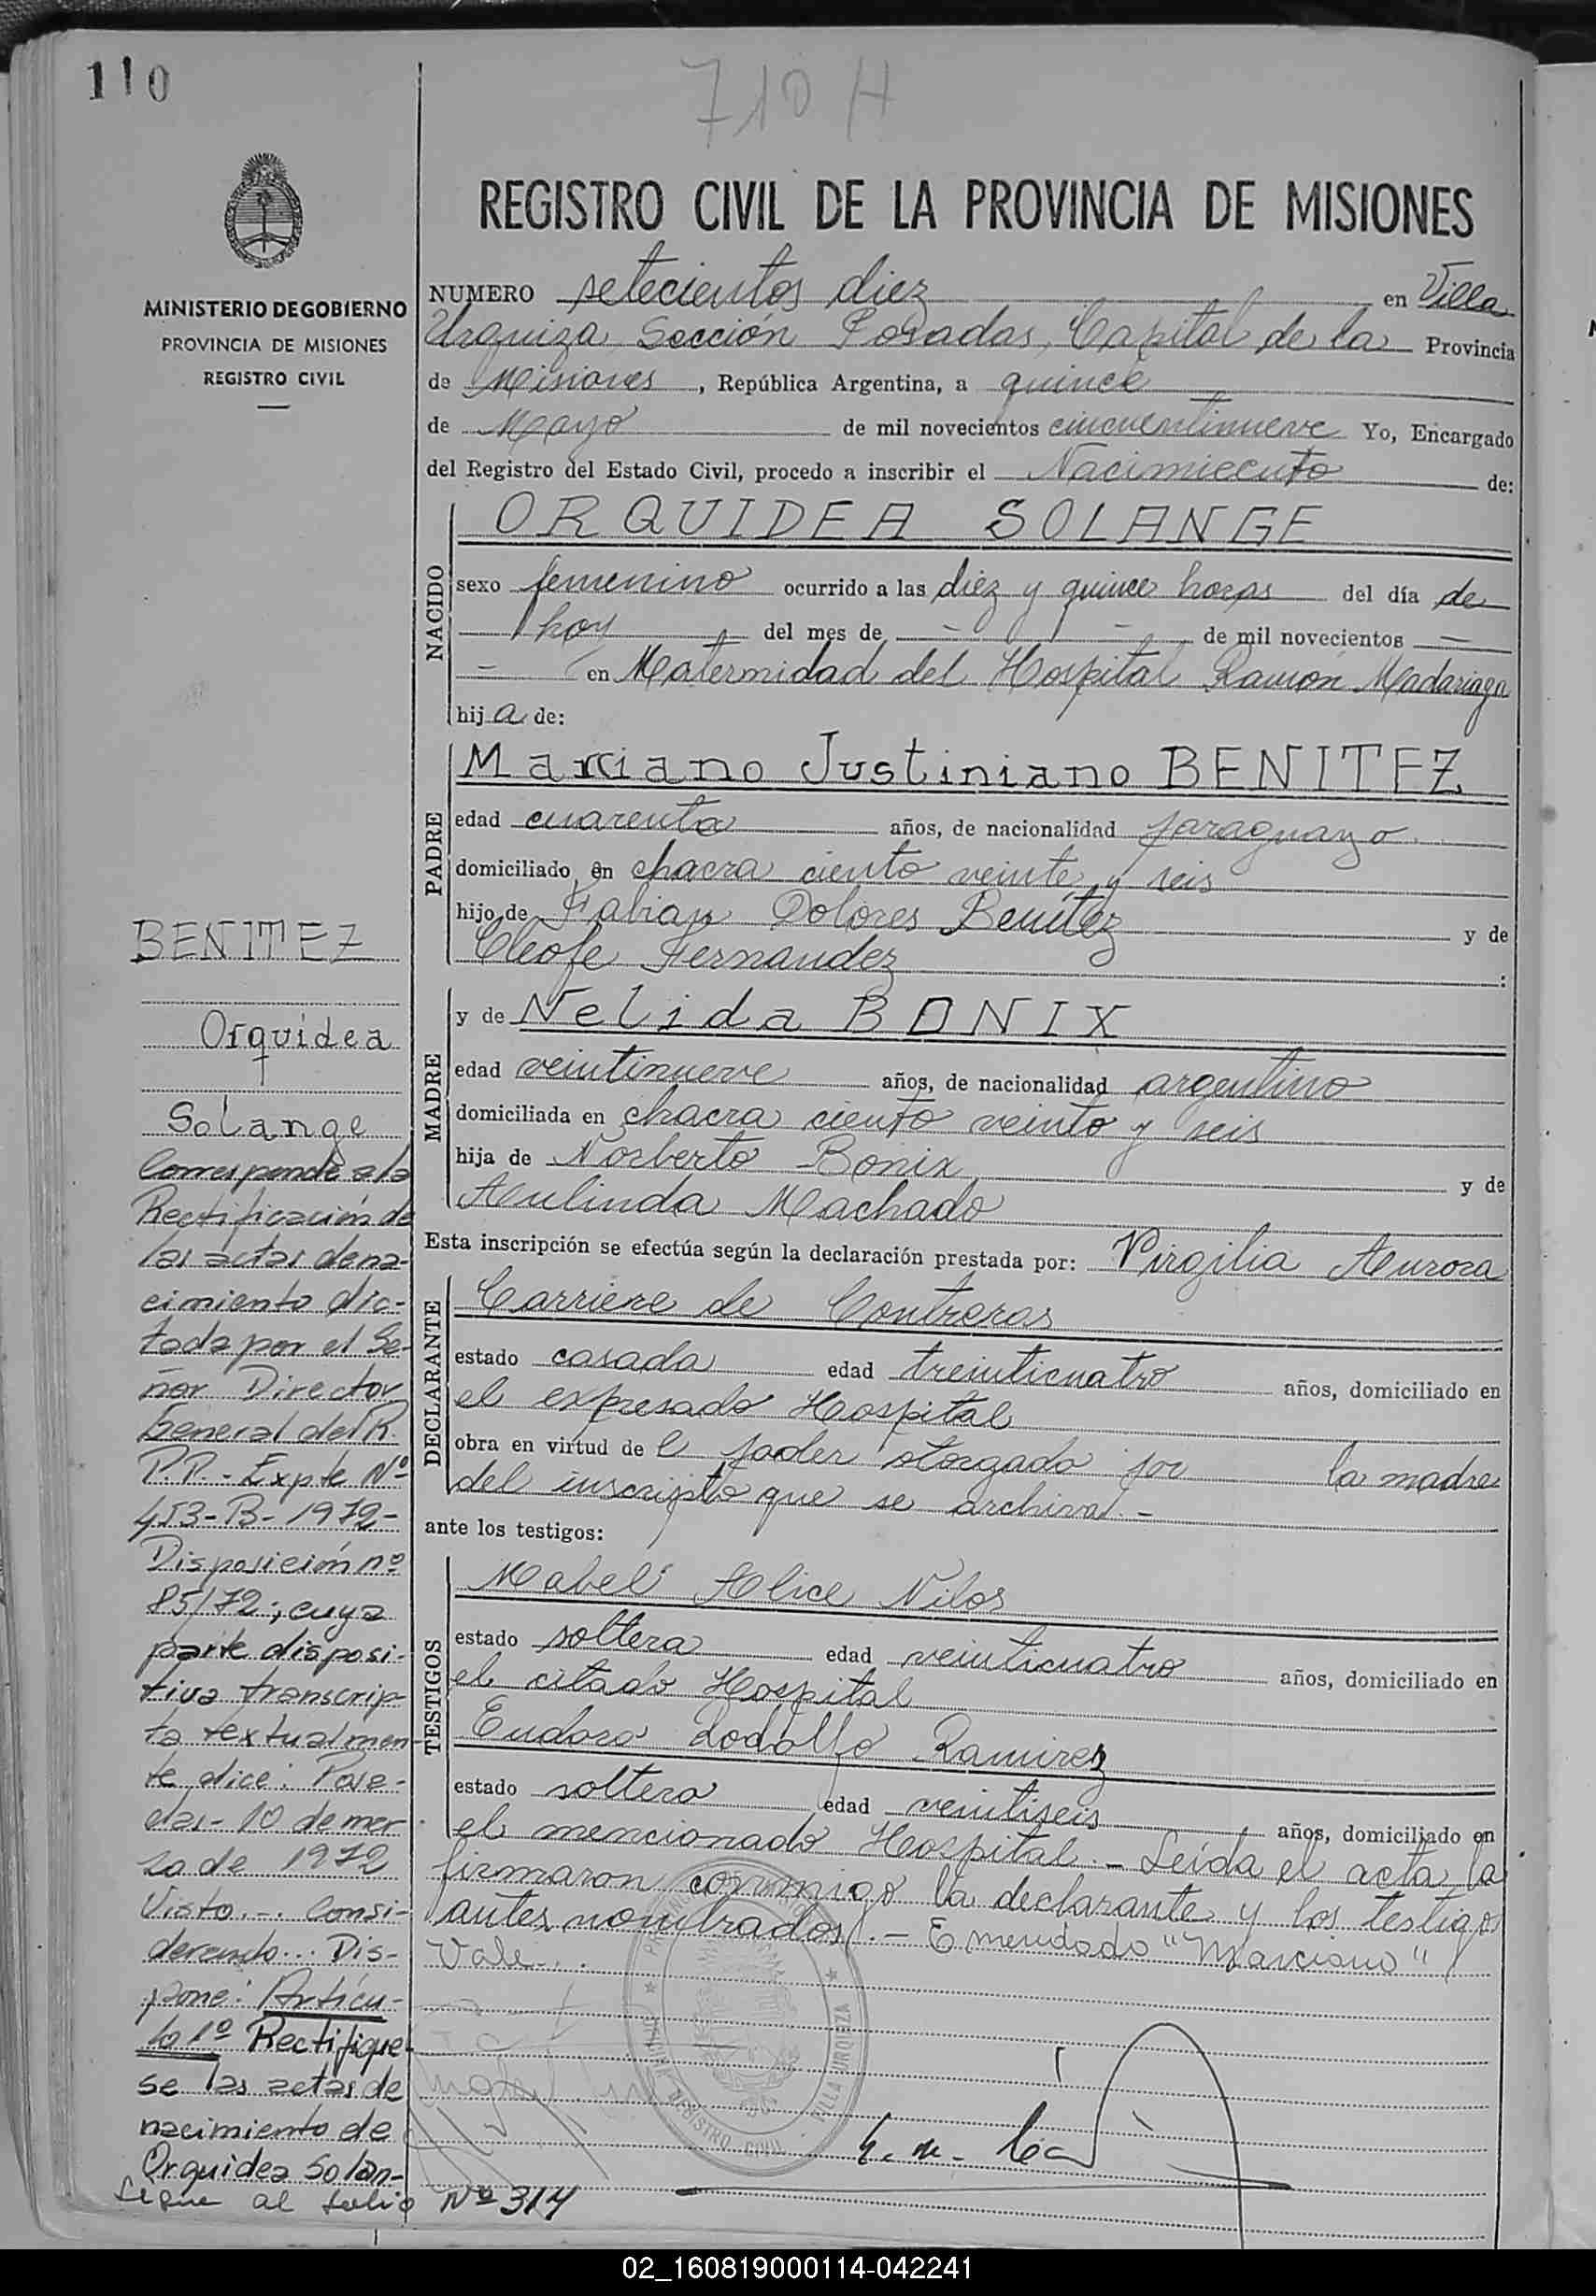 110
710 H
MINISTERIO DE GOBIERNO
PROVINCIA DE MISIONES
REGISTRO CIVIL
REGISTRO CIVIL DE LA PROVINCIA DE MISIONES
NUMERO setecientos diez en Villa
Urquiza Sección Posadas, Capital de la Provincia
de Misiones, República Argentina, a quince
de Mayo de mil novecientos cincuentinueve Yo, Encargado
del Registro del Estado Civil, procedo a inscribir el Nacimiento de:
NACIDO
ORQUIDEA SOLANGE
sexo femenino ocurrido a las diez y quince horas del día de
hoy del mes de - - de mil novecientos -
- en Maternidad del Hospital Ramón Madariaga
hija de:
PADRE
Marciano Justiniano BENITEZ
edad cuarenta años, de nacionalidad paraguayo
domiciliado en chacra ciento veinte y seis
hijo de Fabian Dolores Benítez y de
Cleofe Fernandez :
MADRE
y de Nelida BONIX
edad veintinueve años, de nacionalidad argentino
domiciliada en chacra ciento veinte y seis
hija de Norberto Bonix y de
Aulinda Machado
Esta inscripción se efectúa según la declaración prestada por: Virgilia Aurora
DECLARANTE
Carriere de Contreras
estado casada edad treinticuatro años, domiciliado en
el expresado Hospital
obra en virtud de l poder otorgado por la madre
del inscripto que se archiva.-
ante los testigos:
TESTIGOS
Mabel Alice Nilos
estado soltera edad veinticuatro años, domiciliado en
el citado Hospital
Eudoro Rodolfo Ramirez
estado soltero edad veintiseis años, domiciliado en
el mencionado Hospital.- Leída el acta la
firmaron conmigo la declarante y los testigos
antes nombrados.- Emendado "Marciano"
Vale.
BENITEZ
Orquidea
Solange
Corresponde a la
Rectificación de
las actas de na-
cimiento dic-
tada por el Se-
ñor Director
General del R.
P.P.- Expte Nº
453-B-1972-
Disposición nº
85/72; cuya
parte disposi-
tiva transcrip-
ta textualmen-
te dice: Posa-
das- 10 de mar
zo de 1972
Visto.-. Consi-
derando... Dis-
pone: Artícu-
lo 1º Rectifique-
se las actas de
nacimiento de
Orquidea Solan-
Sigue al folio Nº 314
REGISTRO CIVIL
VILLA URQUIZA
02_160819000114-042241